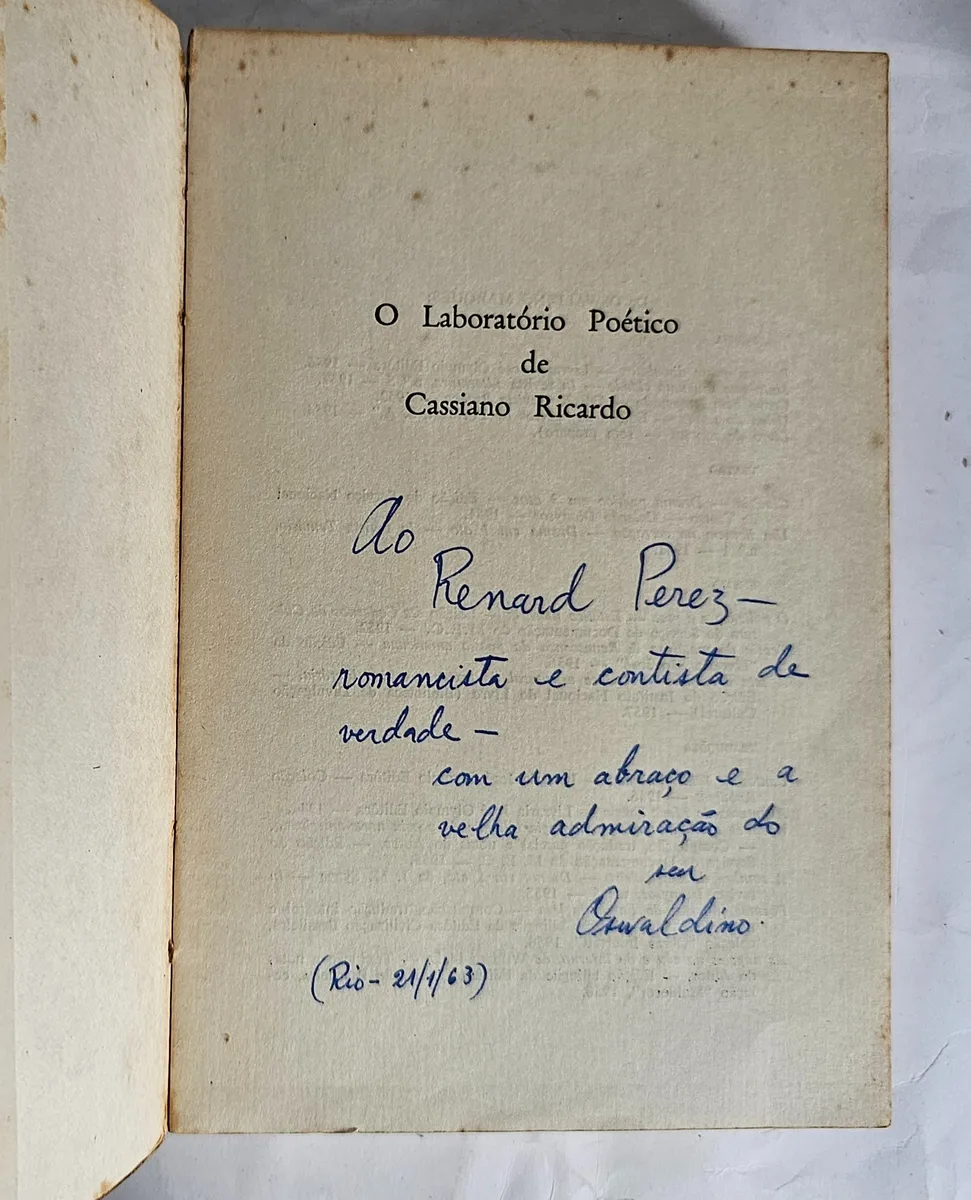 O Laboratório Poético
de
Cassiano Ricardo
Ao
Renard Perez —
romancista e contista de
verdade —
com um abraço e a
velha admiração do
seu
Oswaldino.
(Rio - 21/1/63)